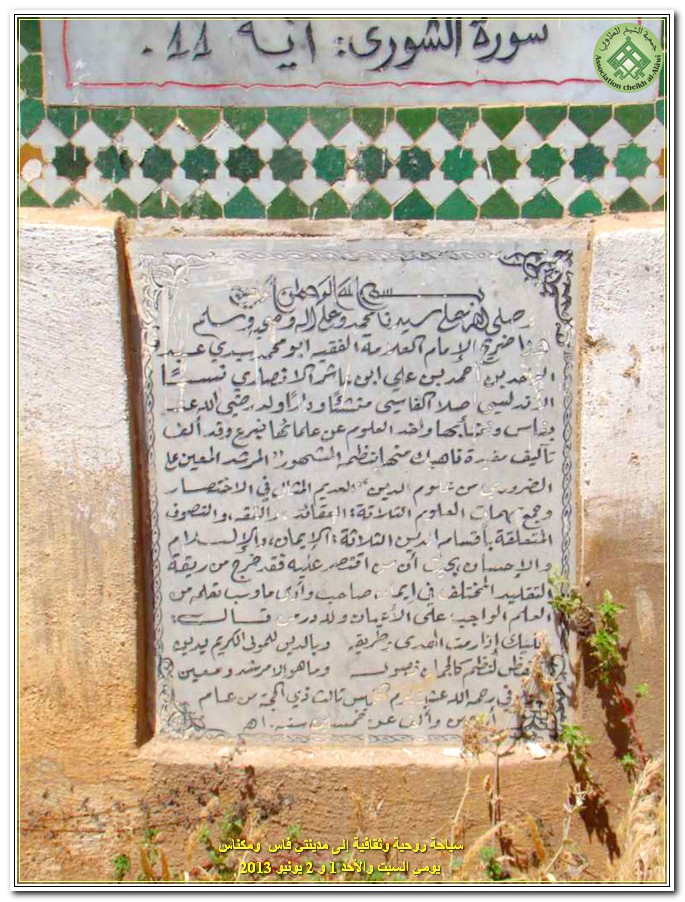 سورة الشورى: آية 11.
جمعية الشيخ العلاوي
Association cheikh al-Alawi
بسم الله الرحمن الرحيم
وصلى الله على سيدنا محمد وعلى آله وصحبه وسلم
هذا ضريح الإمام العلامة الفقيه أبو محمد سيدي عبد
الواحد بن أحمد بن علي ابن عاشر الانصاري نسبا
الأندلسي اصلا الفاسي منشئا ودارا ولد رضي الله عنه
بفاس ونشأ بها وأخد العلوم عن علمائها فبرع وقد ألف
تآليف مفيدة ناهيك منها نظمه الشهور" المرشد المعين على
الضروري من علوم الدين" العديم المثال في الاختصار
وجمع مهمات العلوم الثلاثة: العقائد والفقه، والتصوف
المتعلقة بأقسام الدين الثلاثة: الإيمان، والإسلام
والإحسان بحيث أن من اقتصر عليه فقد خرج من ربقة
التقليد المختلف في إيمان صاحبه وأدى ما وجب تعلمه من
العلم الواجب على الأعيان ولله در من قال:
عليك إذا رمت الهدى وطريقه وبالدين للمولى الكريم يدين
بحفظ لنظم كالجمان فصوله وما هو إلا مرشد ومعين
توفي رحمه الله عشية يوم الخميس ثالث ذي الحجة من عام
أربعين وألف عن خمسين سنة. اهـ
سياحة روحية وثقافية إلى مدينتي فاس ومكناس
يومي السبت والأحد 1 و 2 يونيو 2013